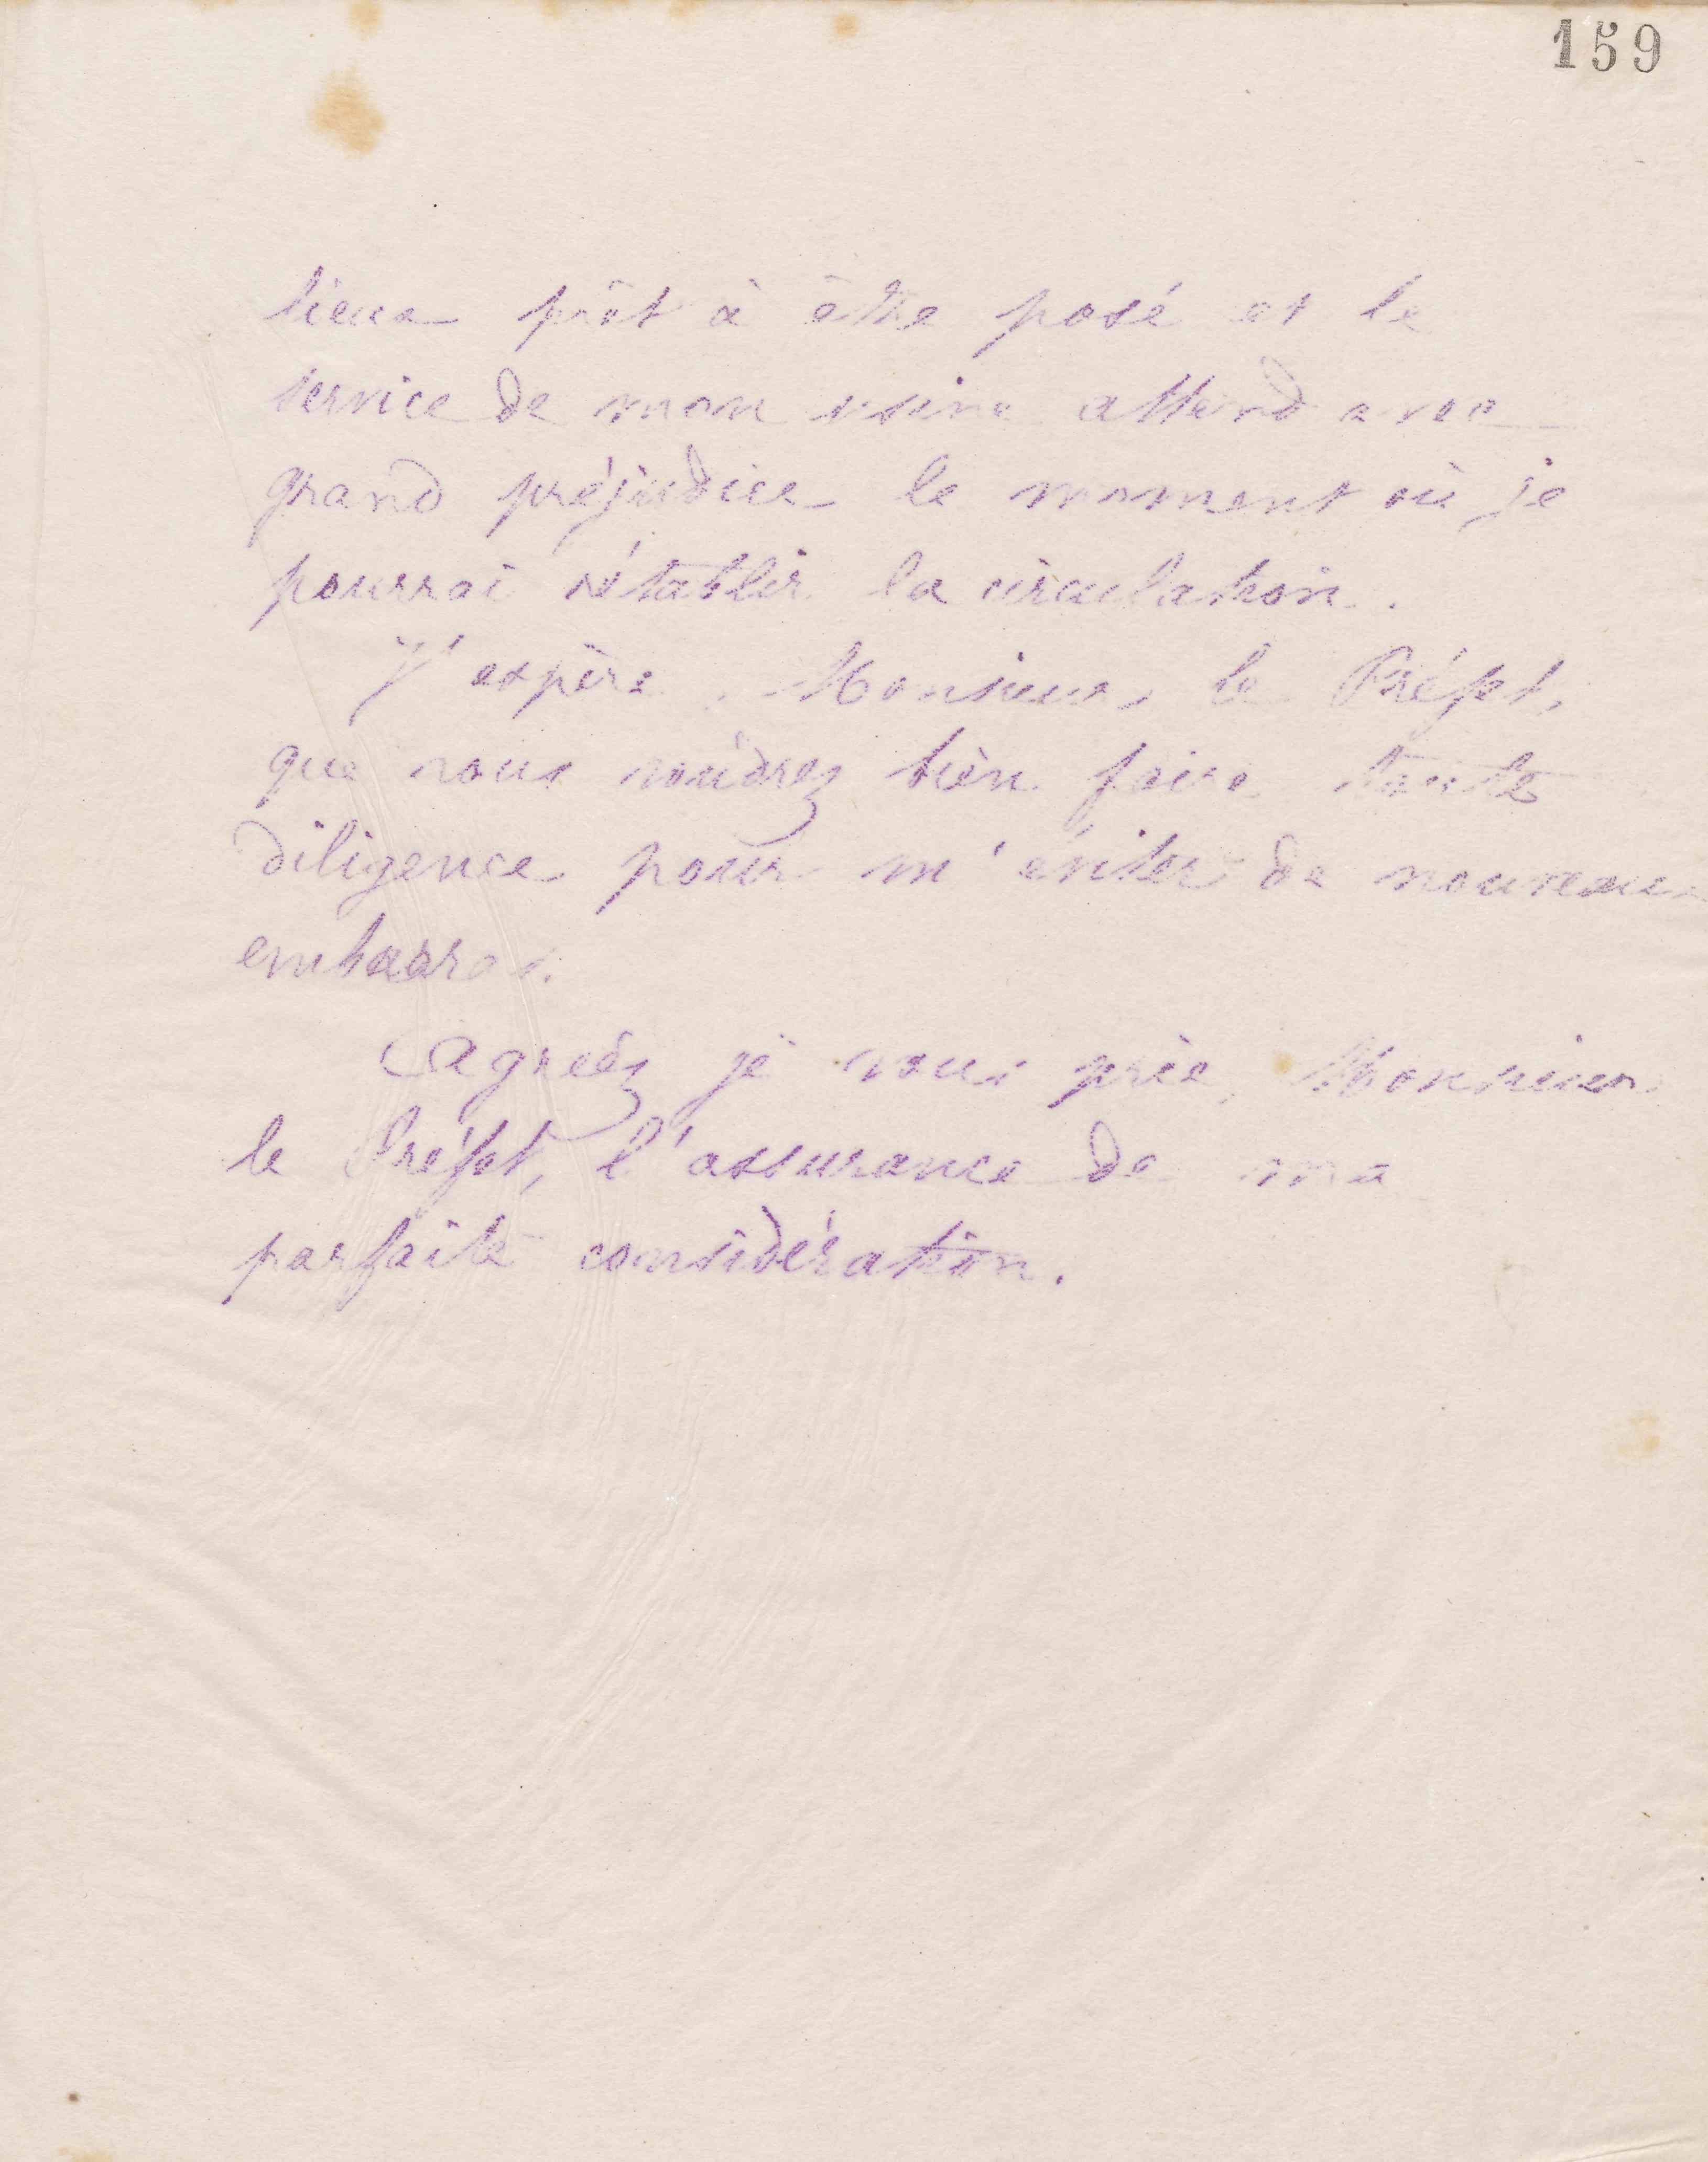 159
lieux prêt à être posé et le
service de mon usine attend avec
grand préjudice le moment où je
pourrai rétablir la circulation.
J'espère, Monsieur le Préfet,
que vous voudrez bien faire toute
diligence pour m'éviter de nouveaux
embarras.
Agréez je vous prie, Monsieur
le Préfet, l'assurance de ma
parfaite considération.